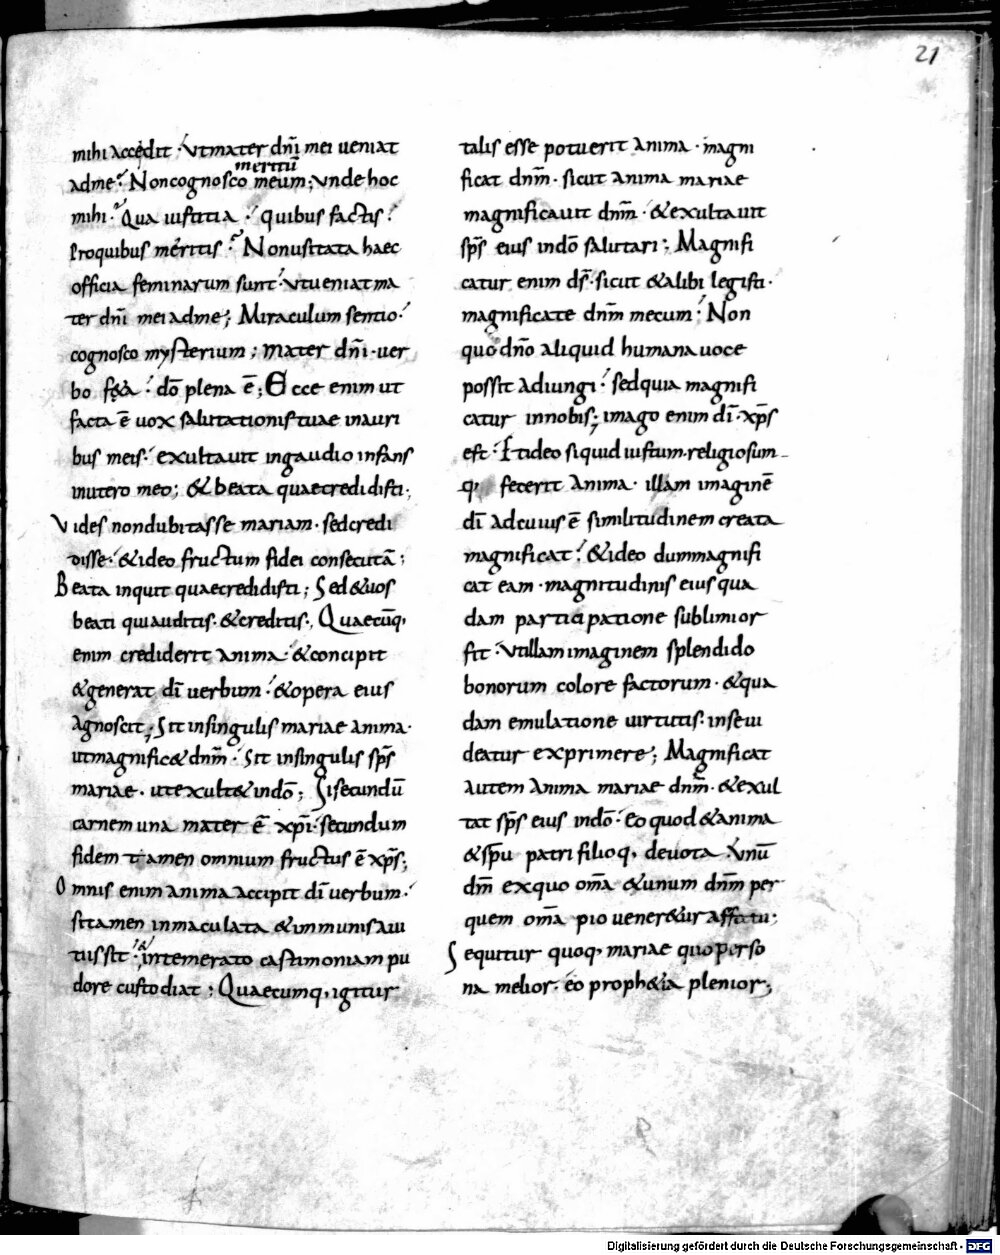 21
mihi accedit · Vt mater dn̄i mei ueniat
meritū
ad me? Non cognosco meum; vnde hoc
mihi? Qua iustitia? quibus factis?
Pro quibus meritis? Non usitata haec
officia feminarum sunt · Vt ueniat ma
ter dn̄i mei ad me; Miraculum sentio·
cognosco mysterium; mater dn̄i · uer
bo · dō plena ē; Ecce enim ut
facta ē uox salutationis tuae in auri
bus meis · exultauit in gaudio infans
in utero meo; & beata quae credidisti;
Vides non dubitasse mariam · sed credi
disse · & ideo fructum fidei consecutā;
Beata inquit quae credidisti; Sed & uos
beati qui auditis · & creditis; Quaecūq;
enim crediderit anima · & concipit
& generat dī uerbum · & opera eius
agnoscit; Sit in singulis mariae anima·
ut magnific& dn̄m · Sit in singulis sp̄s
mariae · ut exult& in dō; Si secundū
carnem una mater ē xp̄i · secundum
fidem tamen omnium fructus ē xp̄s;
Omnis enim anima accipit dī uerbum·
si tamen inmaculata & inmunis a ui
tiis sit · intemerato castimoniam pu
dore custodiat; Quaecumq; igitur
talis esse potuerit anima · magni
ficat dn̄m · sicut anima mariae
magnificauit dn̄m · & exultauit
sp̄s eius in dō salutari; Magnifi
catur enim ds̄ · sicut & alibi legisti·
magnificate dn̄m mecum · Non
quo dn̄o aliquid humana uoce
possit adiungi · sed quia magnifi
catur in nobis; imago enim dī · xp̄s
est · Et ideo si quid iustum · religiosum-
q; fecerit anima · illam imaginē
dī ad cuius ē similitudinem creata
magnificat · & ideo dum magnifi
cat eam · magnitudinis eius qua
dam participatione sublimior
fit · Vt illam imaginem splendido
bonorum colore factorum · & qua
dam emulatione uirtutis · in se ui
deatur exprimere; Magnificat
autem anima mariae dn̄m · & exul
tat sp̄s eius in dō · Eo quod & anima
& spū patri filioq; deuota Vnū
dm̄ ex quo om̄a & unum dn̄m per
quem om̄a pio uener&ur affatu;
Sequitur quoq; mariae quo perso
na melior · eo proph&ia plenior;
Digitalisierung gefördert durch die Deutsche Forschungsgemeinschaft - DFG